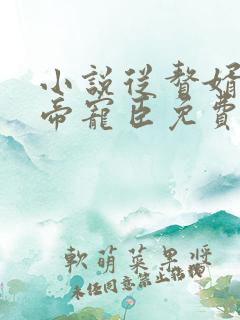 小說從贅婿
帝寵臣免費
軟萌菜果漿
未经同意禁止搭摘